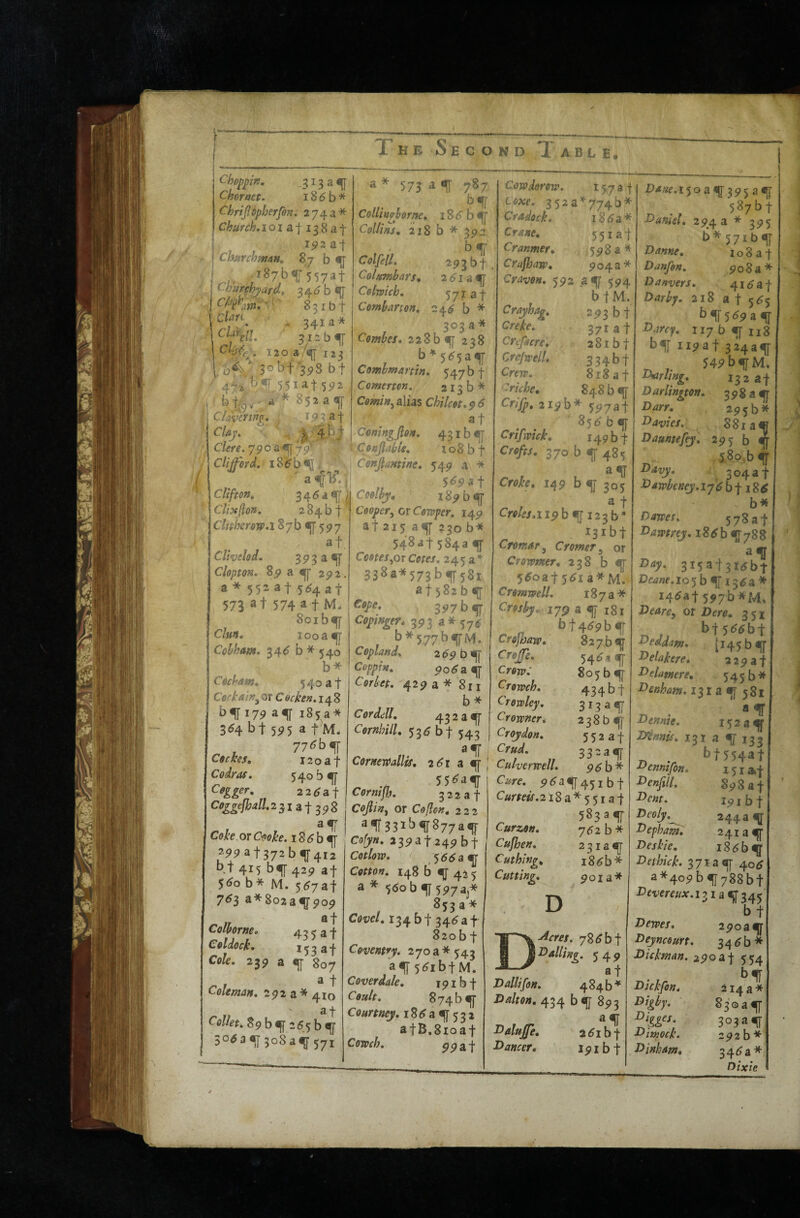 The Second Table.
Choppin. 313 a ¶
Chornet. 186 b *
Christopherson. 274 a *
Church. 101 a † 138 a †
192 a †
Churchman. 87 b ¶
187 b ¶ 557 a †
Churchyard. 346 b ¶
831 b †
341 a *
312 b ¶
120 a ¶ 123
30 b † 398 b †
551 a † 592
a * 852 a ¶
Clavering. 193 a †
Clay.
Clere. 790 a ¶ 79
Clifford. 186 b ¶
Clifton. 346 a ¶
Clixston. 284 b †
Clitherow. 187 b ¶ 597
a †
Clivelod. 393 a ¶
Clopton. 89 a ¶ 292.
a * 552 a † 564 a †
573 a † 574 a † M.
801 b ¶
Clun. 100 a ¶
Cobham. 346 b * 540
b *
Cocham. 540 a †
Cockain, or Cocken. 148
b ¶ 179 a ¶ 185 a *
364 b † 595 a † M.
776 b ¶
Cockes. 120 a †
Codras. 540 b ¶
Cogger. 226 a †
Coggeshall. 231 a † 398
a ¶
Coke or Cooke. 186 b ¶
299 a † 372 b ¶ 412
b † 415 b ¶ 429 a †
560 b * M. 567 a †
763 a * 802 a ¶ 909
a †
Colborne. 435 a †
Coldock. 153 a †
Cole. 239 a ¶ 807
a †
Coleman. 292 a * 410
a †
Collet. 89 b ¶ 265 b ¶
306 a ¶ 308 a ¶ 571
a * 573 a ¶ 787
b ¶
Collingborne. 186 b ¶
Collins. 218 b * 392
b ¶
Colfell. 293 b †
Columbars. 261 a ¶
Colwich. 571 a †
Combarton. 246 b *
303 a *
Combes. 228 b ¶ 238
b * 565 a ¶
Combmartin. 547 b †
Comerton. 213 b *
Comin, alias Chilcot. 96
a †
Coningston. 431 b ¶
Constable. 108 b †
Constantine. 549 a *
569 a †
Coolby. 189 b ¶
Cooper, or Cowper. 149
a † 215 a ¶ 230 b *
548 a † 584 a ¶
Cootes, or Cotes. 245 a *
338 a * 573 b ¶ 581
a † 582 b ¶
Cope. 397 b ¶
Copinger. 393 a * 576
b * 577 b ¶ M.
Copland. 269 b ¶
Coppin. 906 a ¶
Corbet. 429 a * 811
b *
Cordell. 432 a ¶
Cornhill. 536 b † 543
a ¶
Cornewallis. 261 a ¶
556 a ¶
Cornish. 322 a †
Costin, or Coston. 222
a ¶ 331 b ¶ 877 a ¶
Cotyn. 239 a † 249 b †
Cotlow. 566 a ¶
Cotton. 148 b ¶ 425
a * 560 b ¶ 597 a *
853 a *
Covel. 134 b † 346 a †
820 b †
Coventry. 270 a * 543
a ¶ 561 b † M.
Coverdale. 191 b †
Coult. 874 b ¶
Courtney. 186 a ¶ 532
a † B. 810 a †
Cowch. 99 a †
Cowdorow. 157 a †
Coxe. 352 a * 774 b *
Cradock. 186 a *
Crane. 551 a †
Cranmer. 598 a *
Crashaw. 904 a *
Cravon. 592 a ¶ 594
b † M.
Crayhag. 293 b †
Creke. 371 a †
Cresacre. 281 b †
Creswell. 334 b †
Crew. 818 a †
Criche. 848 b ¶
Crisp. 219 b * 597 a †
856 b ¶
Criswick. 149 b †
Crofts. 370 b ¶ 485
a ¶
Croke. 149 b ¶ 305
a †
Croles. 119 b ¶ 123 b *
131 b †
Cromar, Cromer, or
Crowmer. 238 b ¶
560 a † 561 a * M.
Cromwell. 187 a *
Crosby. 179 a ¶ 181
b † 469 b ¶
Croshaw. 827 b ¶
Crosse. 546 a ¶
Crow. 805 b ¶
Crowch. 434 b †
Crowley. 313 a ¶
Crowner. 238 b ¶
Croydon. 552 a †
Crud. 332 a ¶
Culverwell. 96 b *
Cure. 96 a ¶ 451 b †
Curteis. 218 a * 551 a †
583 a ¶
Curzon. 762 b *
Cushen. 231 a ¶
Cuthing. 186 b *
Cutting. 901 a *
D
DAcres. 786 b †
Dalling. 549
a †
Dallison. 484 b *
Dalton. 434 b ¶ 893
a ¶
Dalusse. 261 b †
Dancer. 191 b †
Dane. 150 a ¶ 395 a ¶
587 b †
Daniel. 294 a * 395
b * 571 b ¶
Danne. 108 a †
Danson. 908 a *
Danvers. 416 a †
Darby. 218 a † 565
b ¶ 569 a ¶
Darcy. 117 b ¶ 118
b ¶ 119 a † 324 a ¶
549 b ¶ M.
Darling. 132 a †
Darlington. 398 a ¶
Darr. 295 b *
Davies. 881 a ¶
Dauntesey. 295 b ¶
580 b ¶
Davy. 304 a †
Dawbeney. 176 b † 186
b *
Dawes. 578 a †
Dawtrey. 186 b ¶ 788
a ¶
Day. 315 a † 316 b †
Deane. 105 b ¶ 136 a *
146 a † 597 b * M.
Deare, or Dere. 351
b † 566 b †
Deddam. 145 b ¶
Delakere. 229 a †
Delamere. 545 b *
Denham. 131 a ¶ 581
a ¶
Dennie. 152 a ¶
Dennis. 131 a ¶ 133
b † 554 a †
Dennison. 151 a †
Densill. 898 a †
Dent. 191 b †
Deoly. 244 a ¶
Depham. 241 a ¶
Deskie. 186 b ¶
Dethick. 371 a ¶ 406
a * 409 b ¶ 788 b †
Devereux. 131 a ¶ 345
b †
Dewes. 290 a ¶
Deyncourt. 346 b *
Dickman. 290 a † 554
b ¶
Dickson. 214 a *
Digby. 830 a ¶
Digges. 303 a ¶
Dimock. 292 b *
Dinham. 346 a *
Dixie